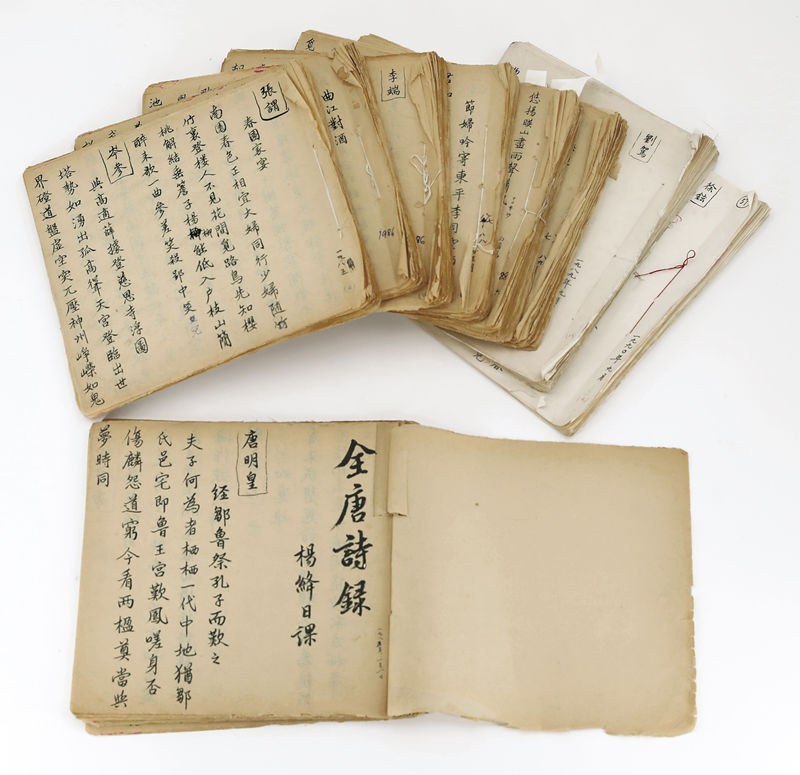 張謂
春園家宴
南園春色正相宜大婦同行少婦隨
竹裏登樓人不見花間覓路鳥先知櫻
桃解結垂簷子楊柳能低入户枝山簡
醉来歌一曲參差笑殺郢中兒
岑參
與高適薛據登慈恩寺浮圖
塔勢如湧出孤高聳天宮登臨出世
界磴道盤虛空突兀壓神州崢嶸如鬼
一九八五
池
曲江對酒
1986
李端
86
覓
節婦吟寄東平李
悠揚映山盡雨聲
劉駕
一九八九年
徐鉉
一九九〇年九月
全唐詩録
楊絳日課
一九八五年一月一日
唐明皇
經鄒魯祭孔子而歎之
夫子何為者栖栖一代中地猶鄒
氏邑宅即魯王宮歎鳳嗟身否
傷麟怨道窮今看兩楹奠當與
夢時同